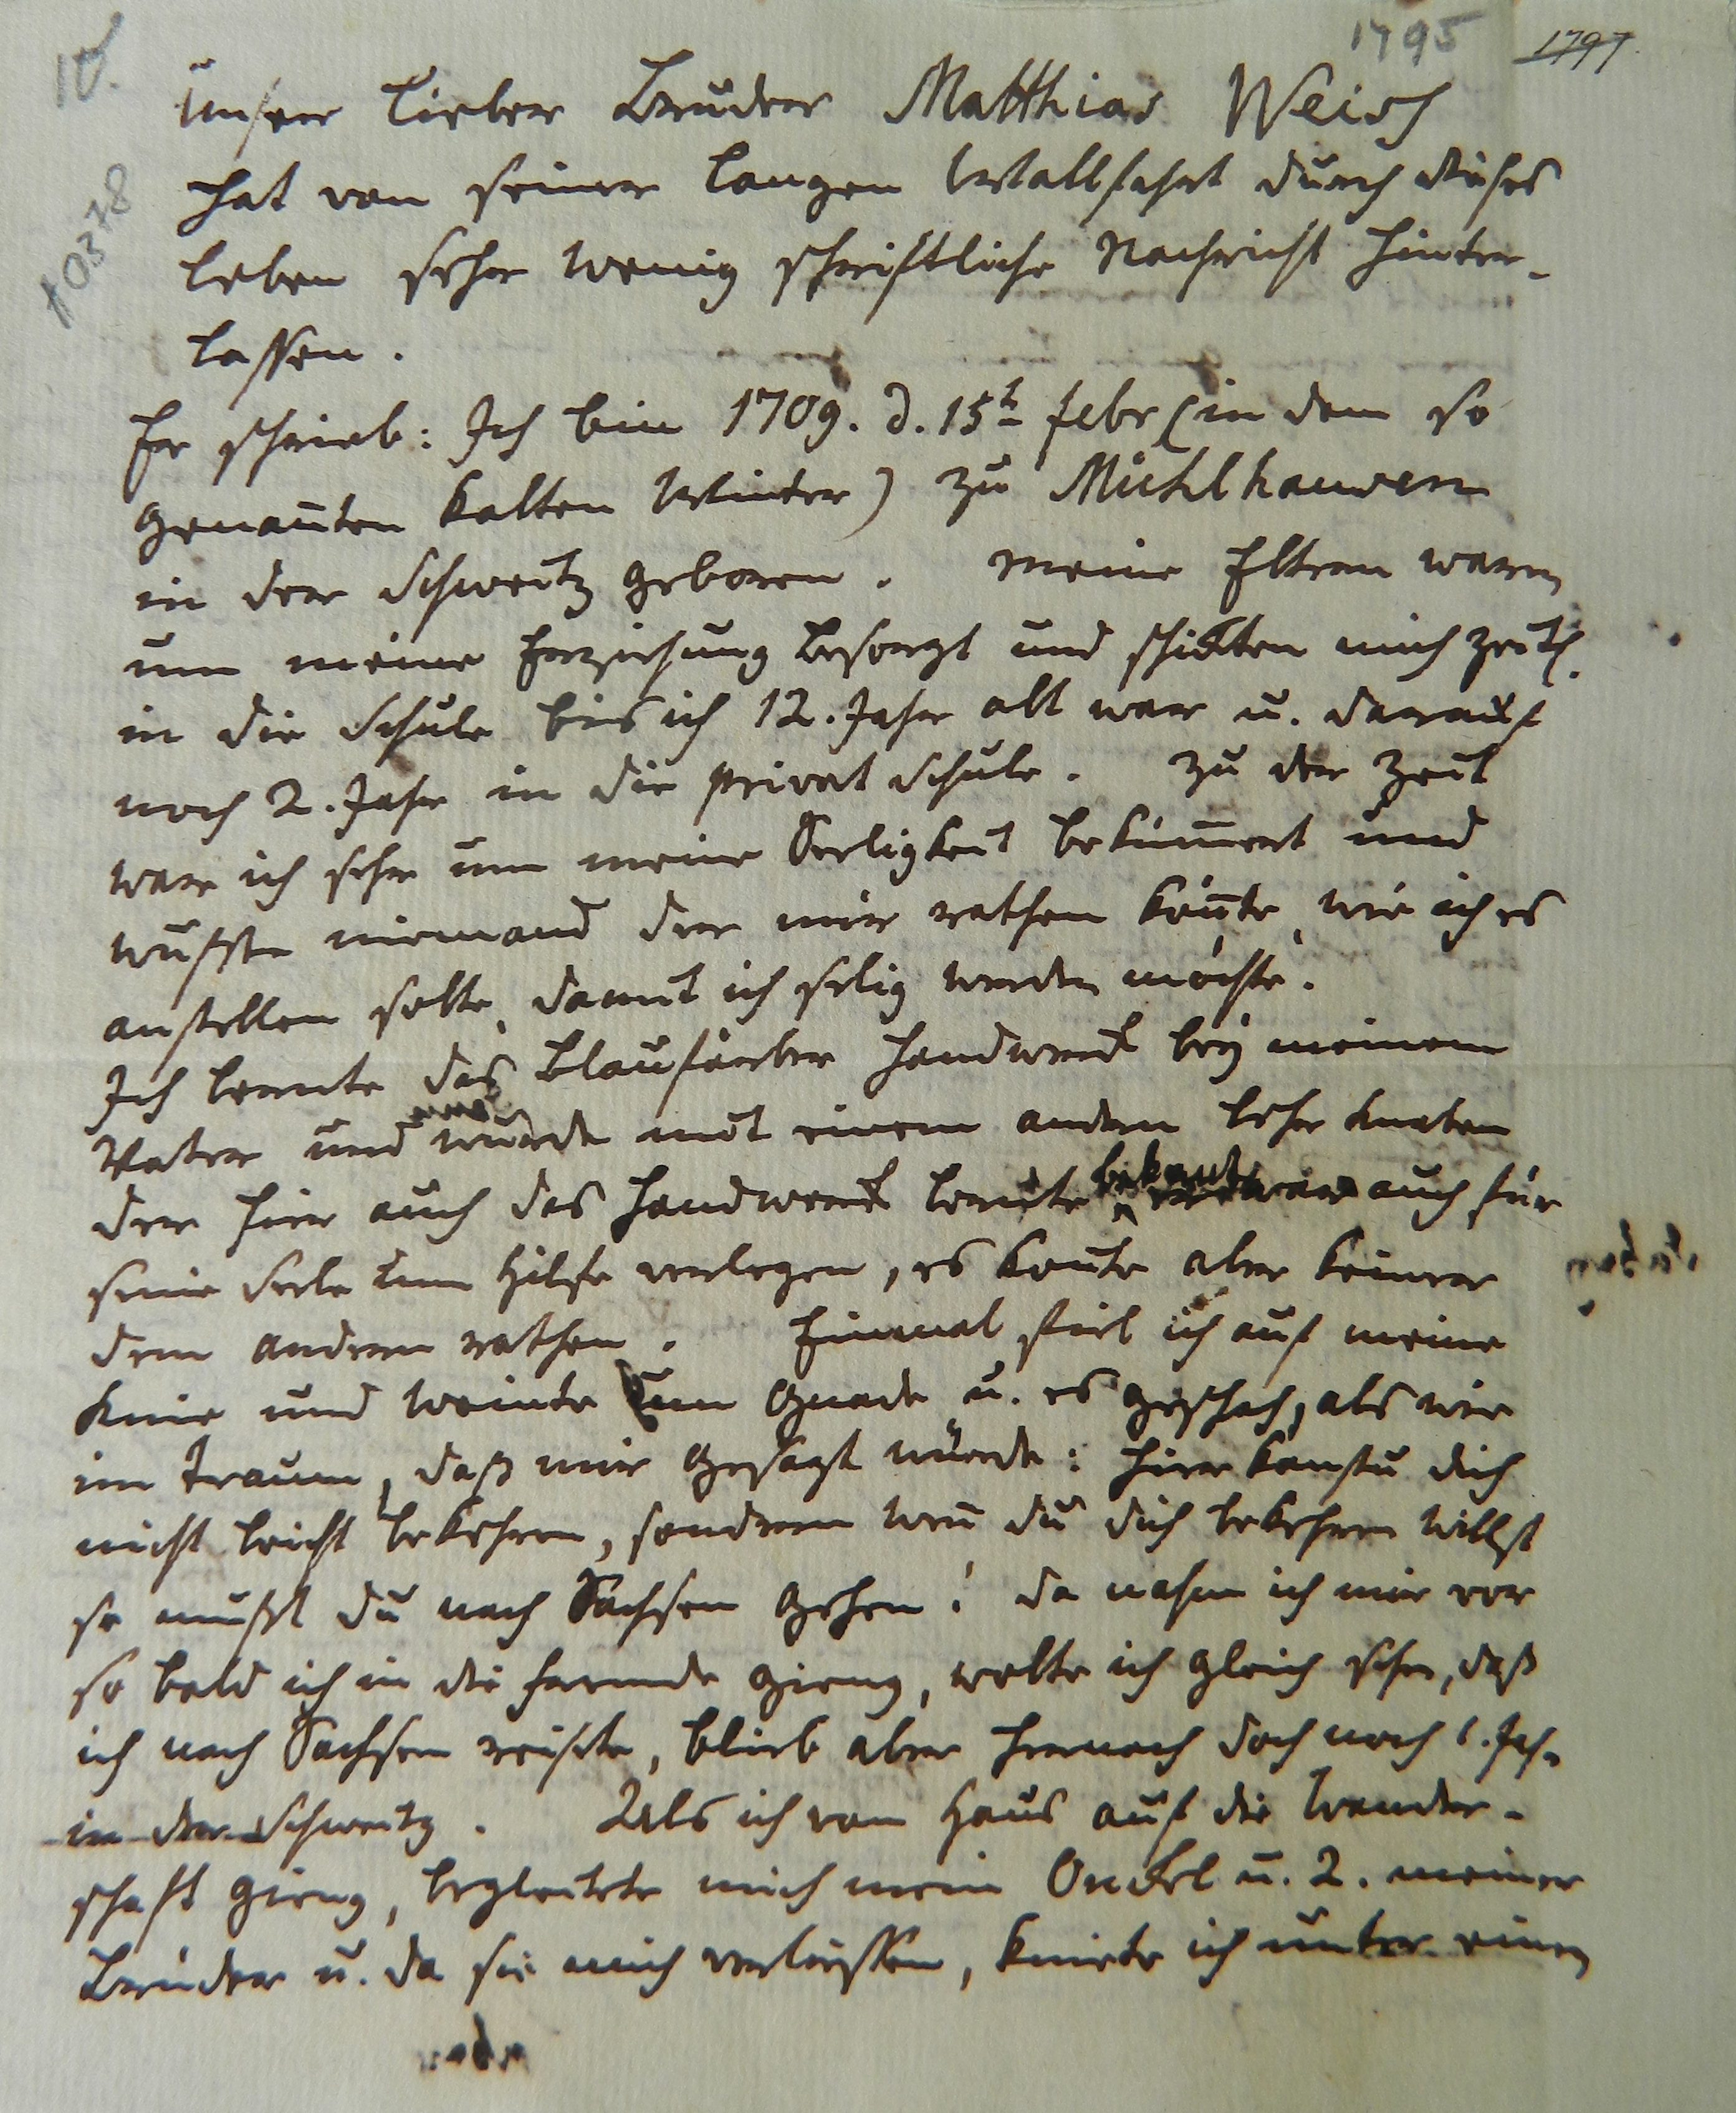 10.
1795
1797.
10378
Unser lieber Bruder Matthias Weiss
hat von seiner langen Wallfahrt durch dieses
Leben sehr wenig schriftliche Nachricht hinter-
lassen.
Er schrieb: Ich bin 1709. d. 15t febr (in dem so
genan̄ten kalten Winter) zu Mühlhausen
in der Schweitz geboren. Meine Eltern waren
um meine Erziehung besorgt und schikten mich zeitl.
in die Schule bis ich 12. Jahr alt war u. darauf
noch 2. Jahr in die privat Schule. Zu der Zeit
war ich sehr um meine Seeligkeit beküm̄ert und
wußte niemand der mir rathen kön̄te, wie ich es
anstellen solte, damit ich selig werden möchte.
Ich lernte das Blaufärber Handwerk bey meinem
Vater und wurde mit einem andern Lehr Knaben
der hier auch das Handwerk lernte bekant auch für
seine Seele um Hilfe verlegen, es konte aber keiner
dem andern rathen. Einmal fiel ich auf meine
Knie und weinte um Gnade u. es geschah, als wie
im Traum, daß mir gesagt würde: hier kanstu dich
nicht leicht bekehren, sondern wen̄ du dich bekehren willst
so mußt du nach Sachsen gehen! da nahm ich mir vor
so bald ich in die Fremde gieng, wolte ich gleich sehn, daß
ich nach Sachsen reiste, blieb aber hernach doch noch 1. Jahr
in der Schweitz. Als ich vom Haus auf die Wander-
schaft gieng, begleitete mich mein Onckel u. 2. meiner
Brüder u. da sie mich verliessen, kniete ich unter einen